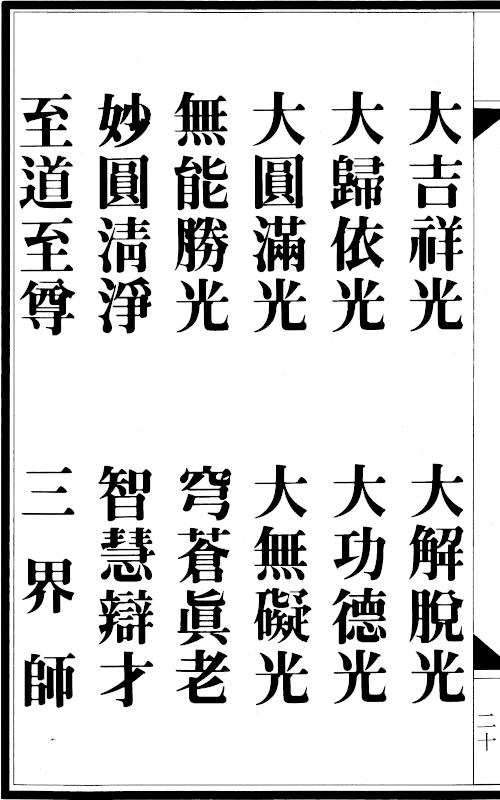 大吉祥光　大解脫光
大歸依光　大功德光
大圓滿光　大無礙光
無能勝光　穹蒼眞老
妙圓清淨　智慧辯才
至道至尊　三界師
二十